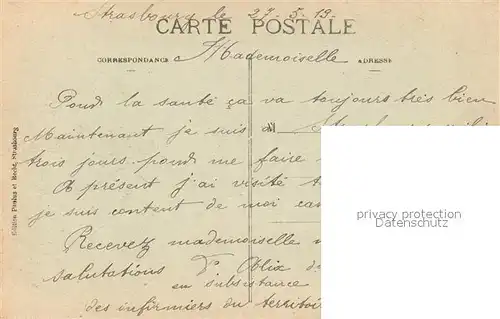 Strasbourg le 27-5-19.
CARTE POSTALE
CORRESPONDANCE Mademoiselle ADRESSE
Pour la santé ça va toujours très bien
Maintenant je suis a
trois jours pour me faire
A présent j'ai visité
je suis content de moi
Recevez mademoiselle
salutations
en subsistance
des infirmiers du territoi
privacy protection
Datenschutz